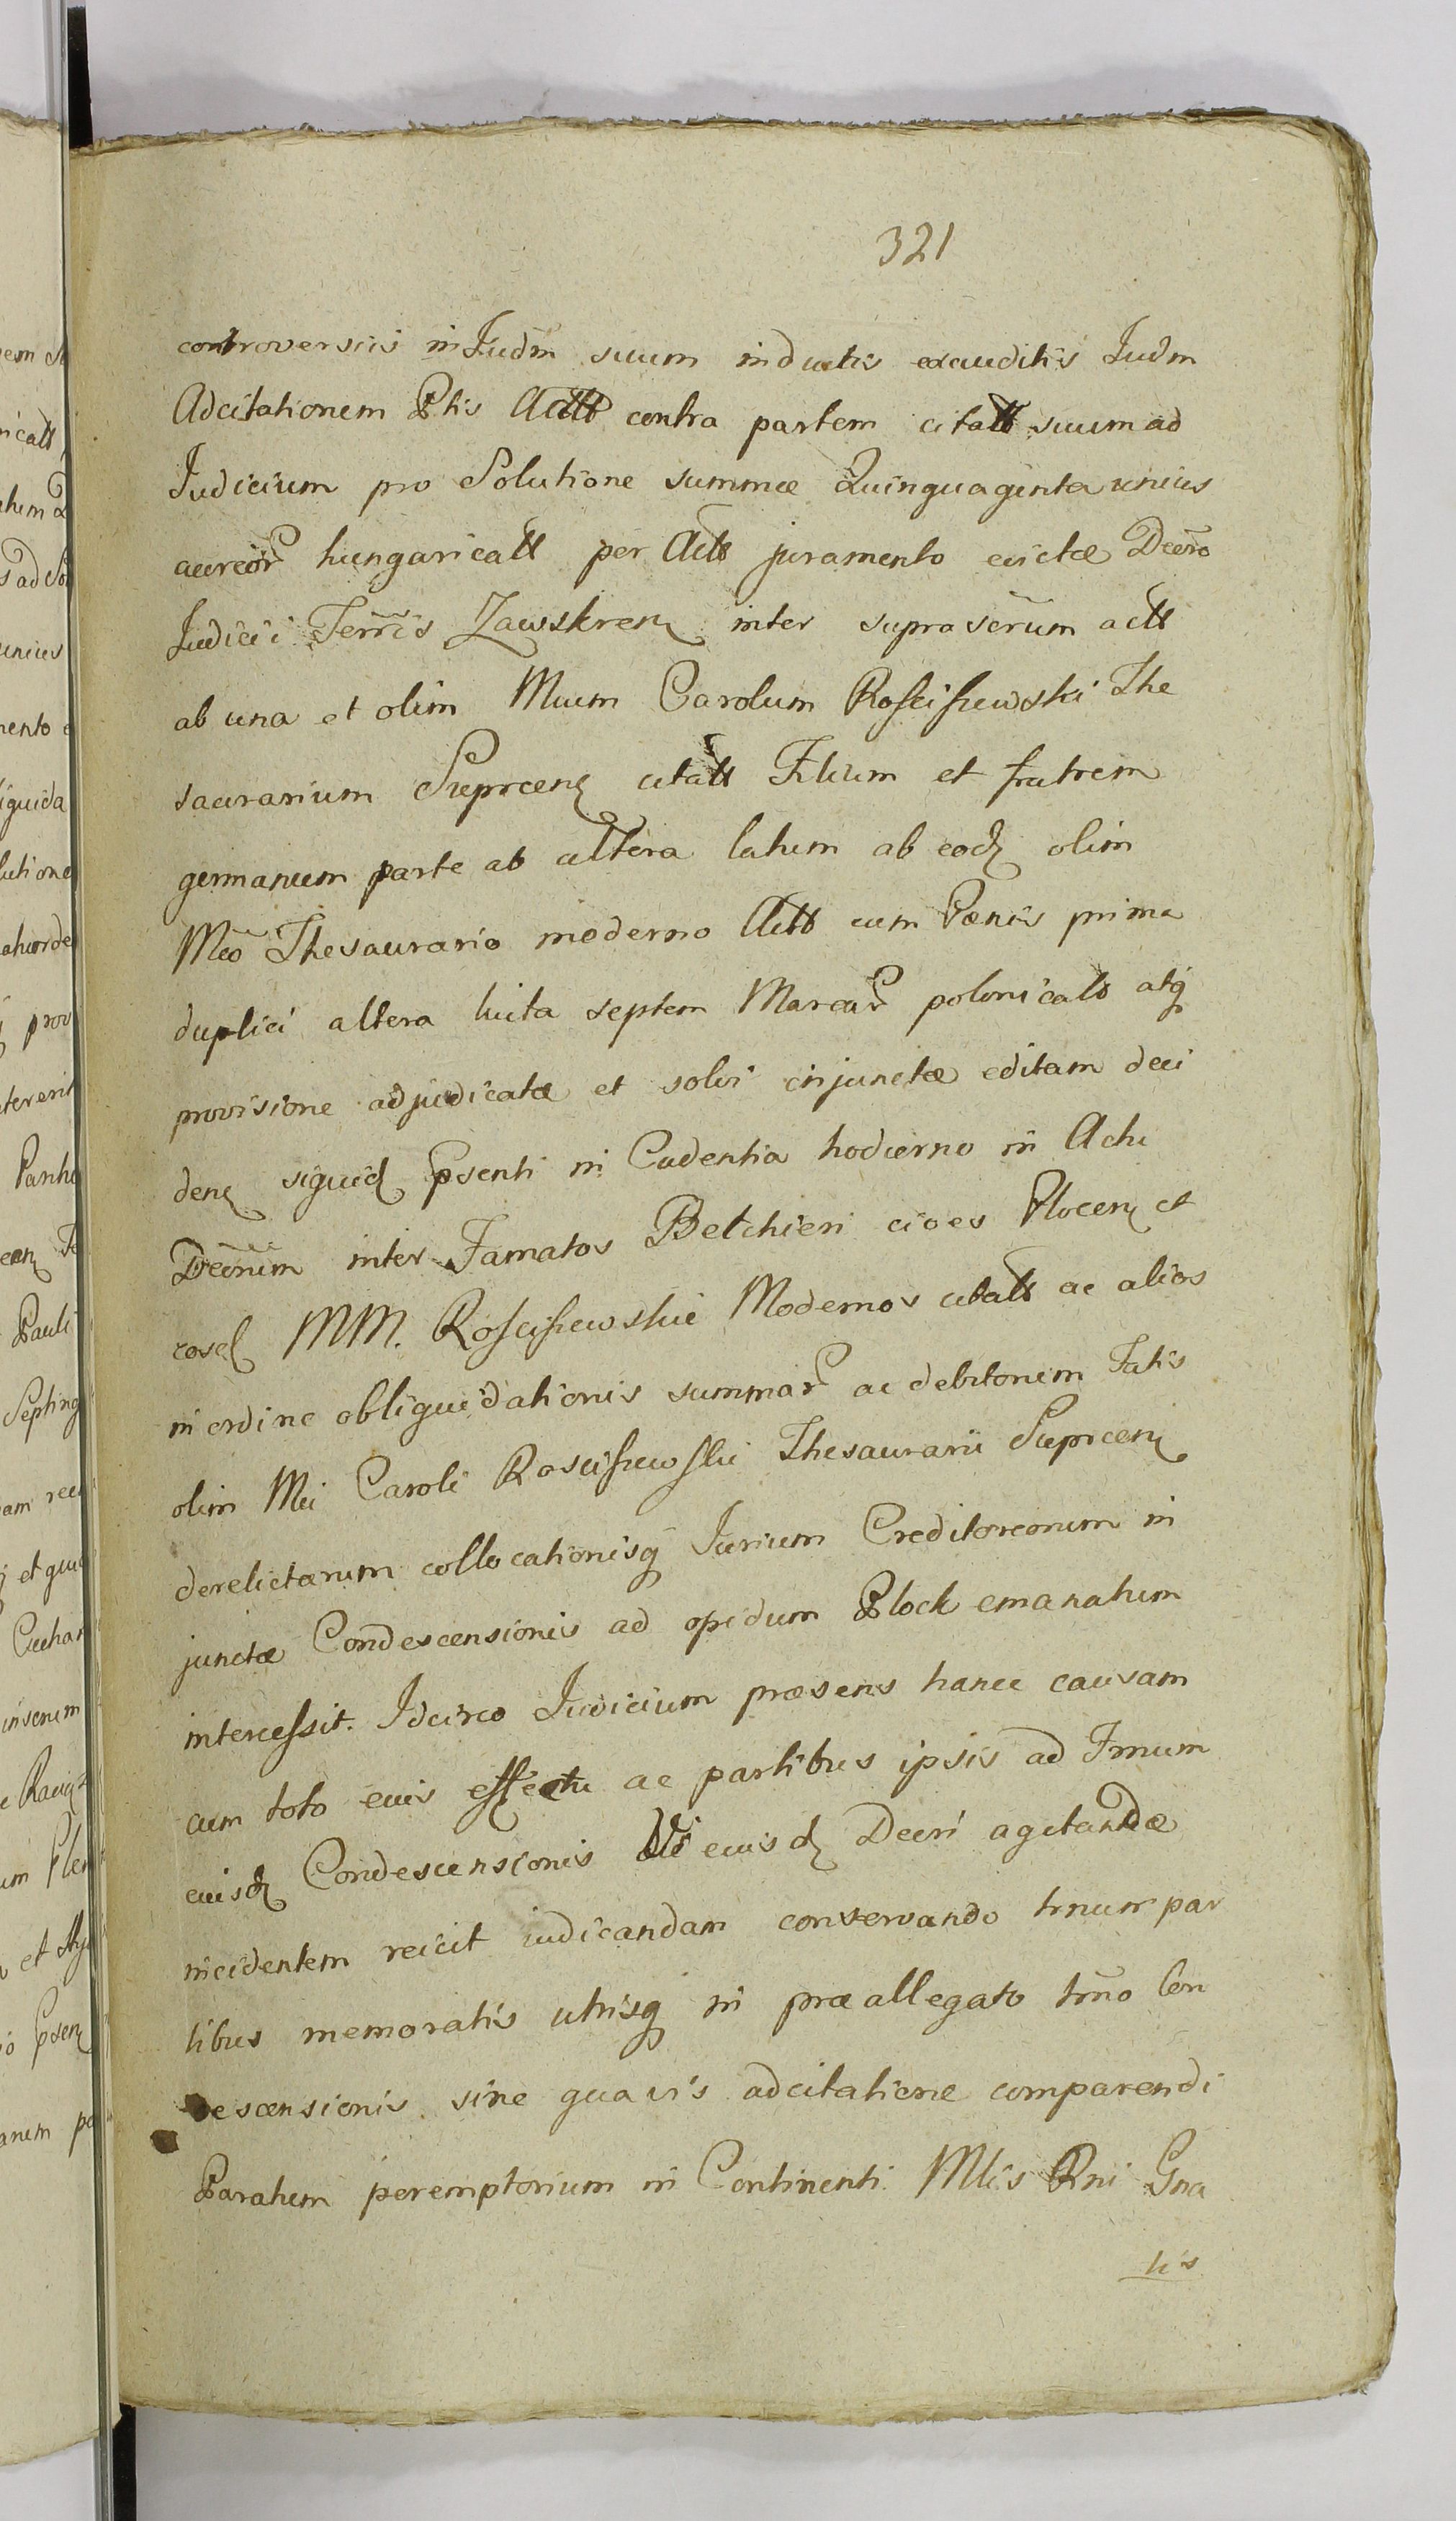 321
controversiis in Iudm̃ suum inductis exauditis Iudm
Adcitationem Ptis Actt contra partem citatt suum ad
Judicium pro Solutione summæ Quinquaginta unius
aureor hungaricatt per Actt juramento evictæ Decr̃o
Judicii Terr̃is Zawskren inter suprascr̃um actt
ab una et olim Mcum Carolum Rosciszewski The
saurarium Sieprcen citatt Filium et fratrem
germanum parte ab altera latum ab eod olim
Mco Thesaurario moderno Actt cum Pænis prima
duplici altera luita septem Marcar polonicatt atq
provisione adjudicatæ et solvi injunctæ editam deci
den siquid Psenti in Cadentia hodierno in Actu
Decr̃um inter Famatos Betchieri cives Plocen et
eosd MM. Rosciszewskie Modernos citatt ac alios
in ordine obliquidationis summar ac debitorum Fatis
olim Mci Caroli Rosciszewskie Thesaurarii Sieprcen
derelictarum collocationisq Jurium Creditoreorum in
junctæ Condescensionis ad opidum Plock emanatum
intercessit. Idcirco Judicium præsens hance causam
cum toto euis effectu ac partibus ipsis ad Trnum
euisd Condescensionis Vi euisd Decri agitandæ
incidentem reicit iudicandam conservando trnum par
tibus memoratis utrisq in præallegato trño Con
descensionis sine quavis adcitatione comparendi
Paratum peremptorium in Continenti. Mlis Rni Gna
lis